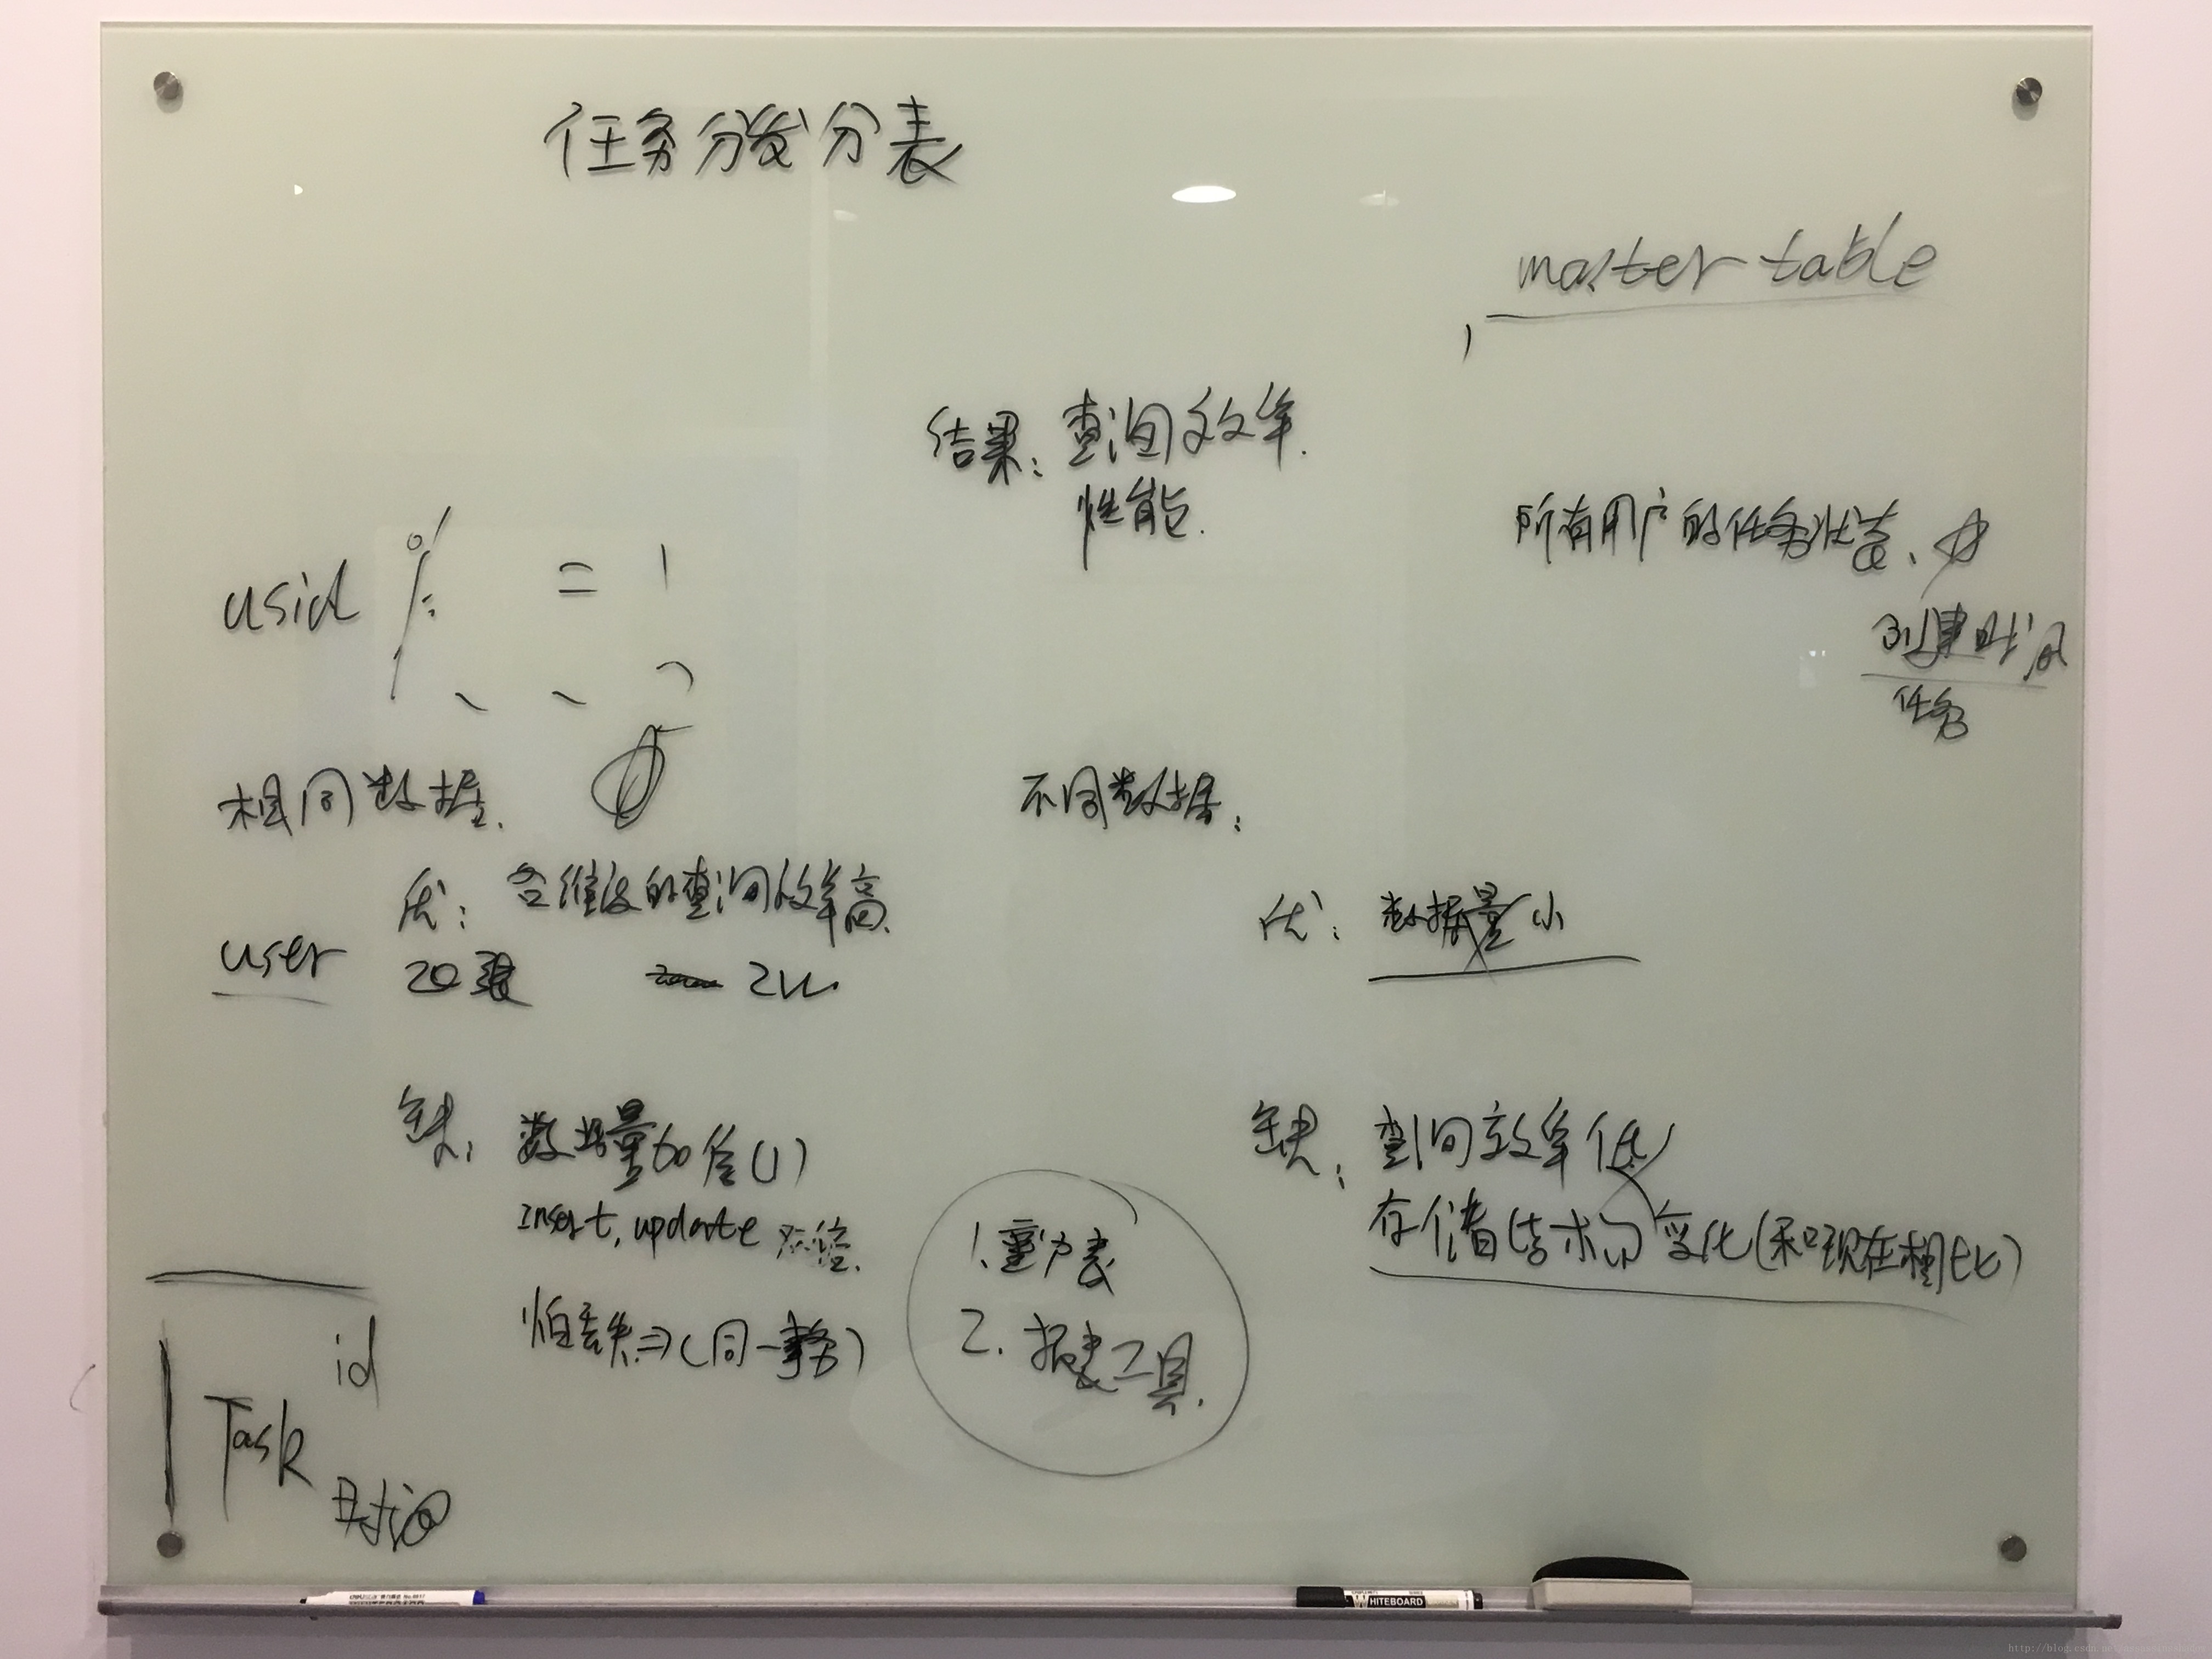 任务分发分表
master table
结果：查询效率.
性能.
所有用户的任务状态、
创建时间
任务
usid % = 1
相同数据.
不同数据：
优：各维度的查询效率高.
优：数据量小
user 20张 2W.
缺：数据量加倍(1)
insert, update
怕丢失⇒(同一事务)
缺：查询效率低
存储结构变化(和现在相比)
2. 报表工具.
id
Task
时间
WHITEBOARD